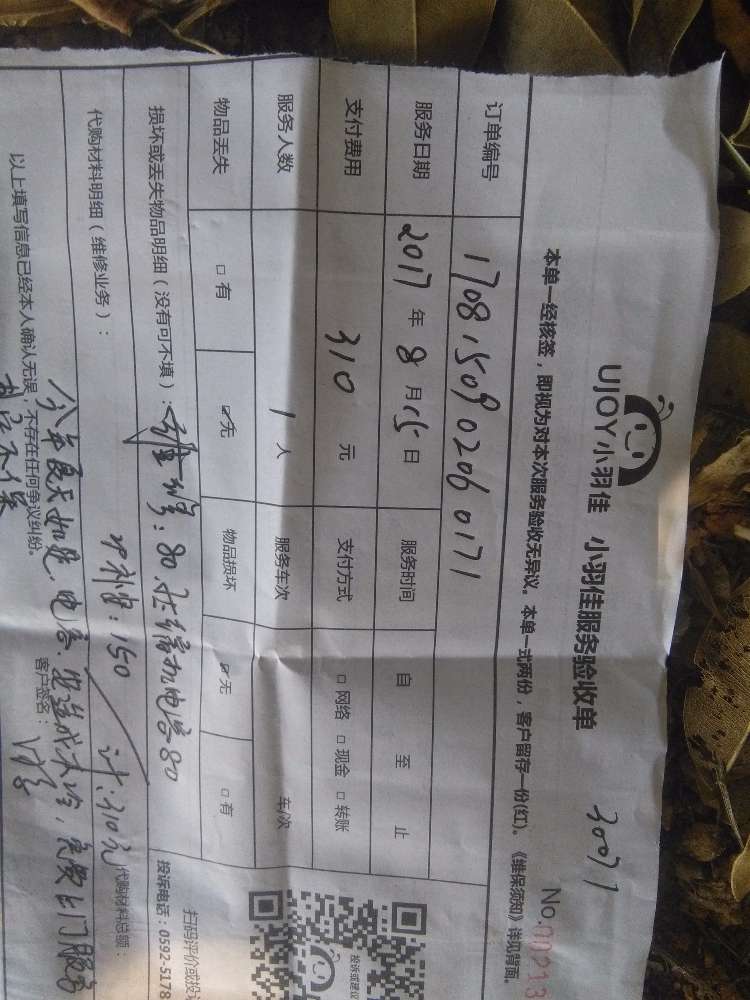 UJOY小羽佳 小羽佳服务验收单
30071
No.00213
本单一经核签，即视为对本次服务验收无异议。本单一式两份，客户留存一份(红)。《维保须知》详见背面。
订单编号 1708150902060171
服务日期 2017年8月15日 服务时间 自 至 止
支付费用 310元 支付方式 □网络 □现金 □转账
服务人数 1人 服务车次 车/次
物品丢失 □有 ☑无 物品损坏 ☑无 □有
损坏或丢失物品明细（没有可不填）：维修：80 压缩机电容80
代购材料明细（维修业务）： 补 ：150 计：310元 代购材料总额：
以上填写信息已经本人确认无误，不存在任何争议纠纷。 客户签名：
今年夏天如是电容 造成不冷，免费上门服务
扫码评价或投诉
投诉电话：0592-5178
投诉或建议